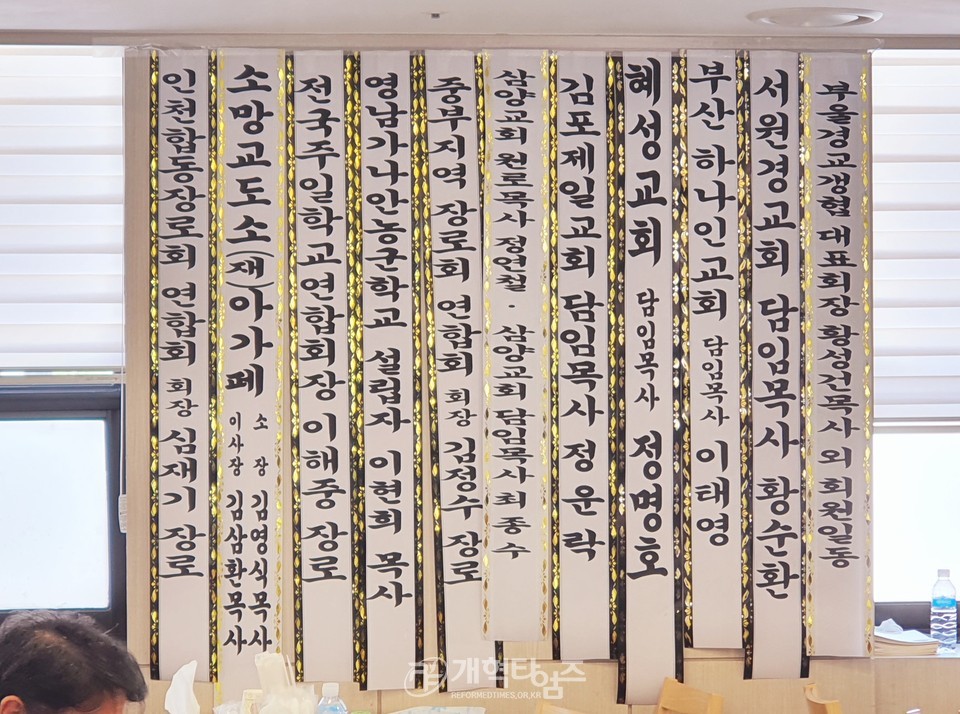 인천합동장로회 연합회 회장 심재기 장로
소망교도소(재)아가페 소 장 김영식목사
이사장 김삼환목사
전국주일학교연합회장 이해중 장로
영남가나안농군학교 설립자 이현희 목사
중부지역 장로회 연합회 회장 김정수 장로
삼양교회 원로목사 정연철 · 삼양교회 담임목사 최종수
김포제일교회 담임목사 정운락
혜성교회 담임목사 정명호
부산 하나인교회 담임목사 이태영
서원경교회 담임목사 황순환
부울경교갱협 대표회장 황성건목사 외 회원일동
개혁타임즈
REFORMEDTIMES.OR.KR